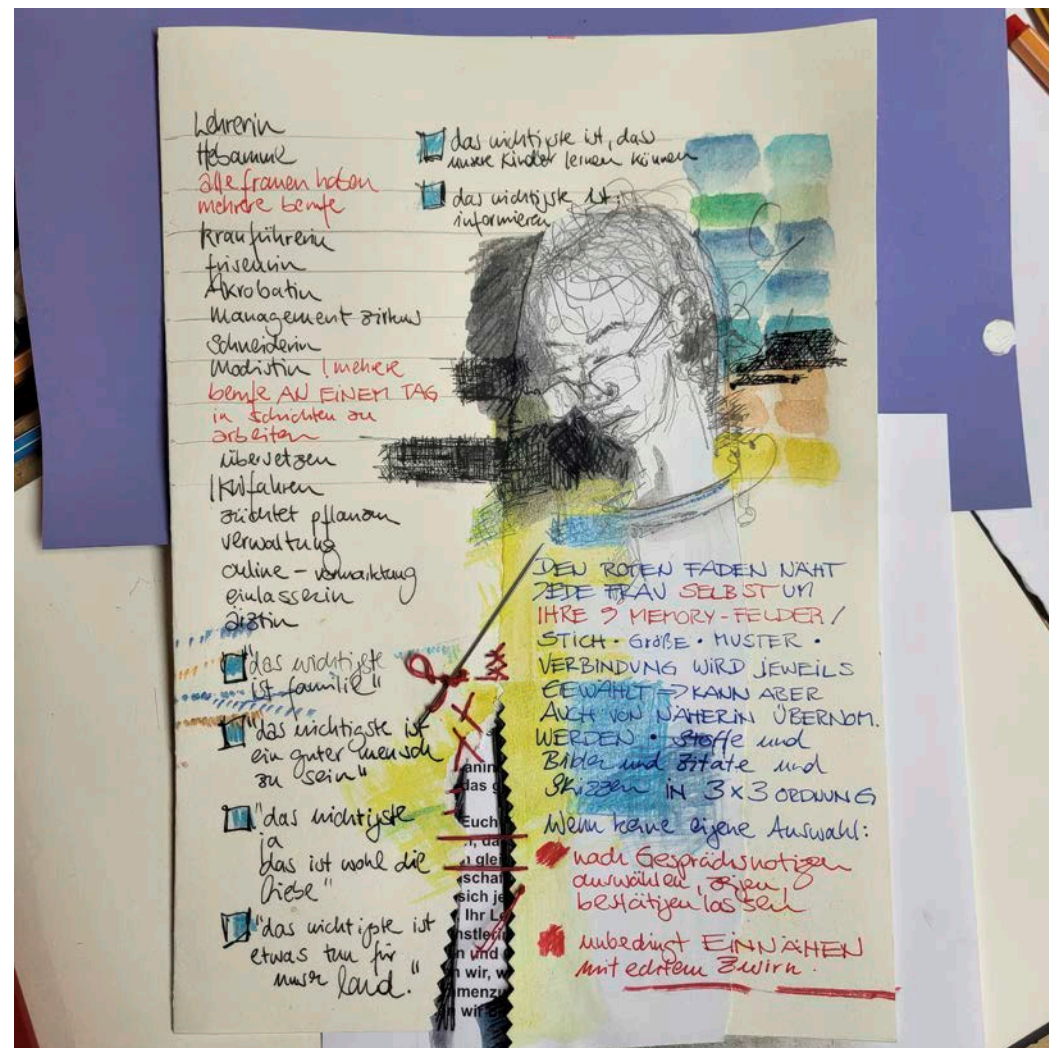 Lehrerin
Hebamme
alle frauen haben
mehrere berufe
kranführerin
friseurin
Akrobatin
management zirkus
Schneiderin
Modistin / mehrere
berufe AN EINEM TAG
in schichten zu
arbeiten
übersetzen
LKWfahren
züchtet pflanzen
verwaltung
online - vermarktung
einlasserin
ärztin
"das wichtigste
ist familie"
"das wichtigste ist
ein guter mensch
zu sein"
"das wichtigste
ja
das ist wohl die
liebe"
"das wichtigste ist
etwas tun für
unser land."
das wichtigste ist, dass
unsere Kinder lernen können
das wichtigste ist:
informieren
DEN ROTEN FADEN NÄHT
JEDE FRAU SELBST UM
IHRE 9 MEMORY-FELDER /
STICH • GRÖßE • MUSTER •
VERBINDUNG WIRD JEWEILS
GEWÄHLT => KANN ABER
AUCH VON NÄHERIN ÜBERNOM.
WERDEN • Stoffe und
Bilder und Zitate und
Skizzen IN 3x3 ORDNUNG
Wenn keine eigene Auswahl:
nach Gesprächsnotizen
auswählen, zeigen,
bestätigen lassen
unbedingt EINNÄHEN
mit echtem Zwirn.
anin
das g
Euch
, da
glei
schaf
sich je
Ihr Le
nstleri
n und
wir, w
menzu
wir